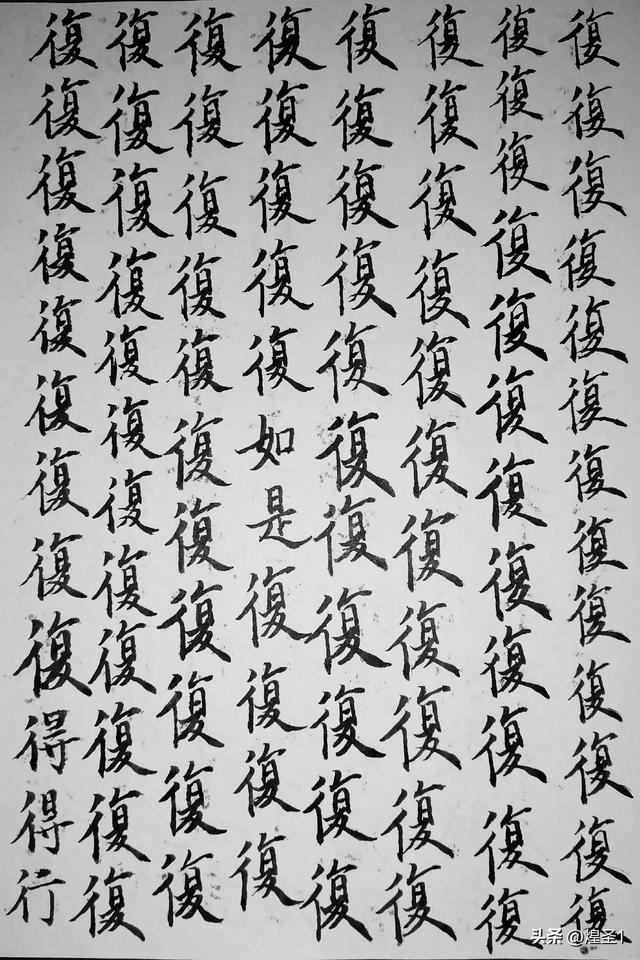 復復復復復復復復復復復復復
復復復復復復復復復復復復
復復復復復復復復復復復
復復復復復復復復復復復
復復復復復如是復復復復
復復復復復復復復復復復
復復復復復復復復復復復復
復復復復復復復復復得得行
头条 @煌圣1